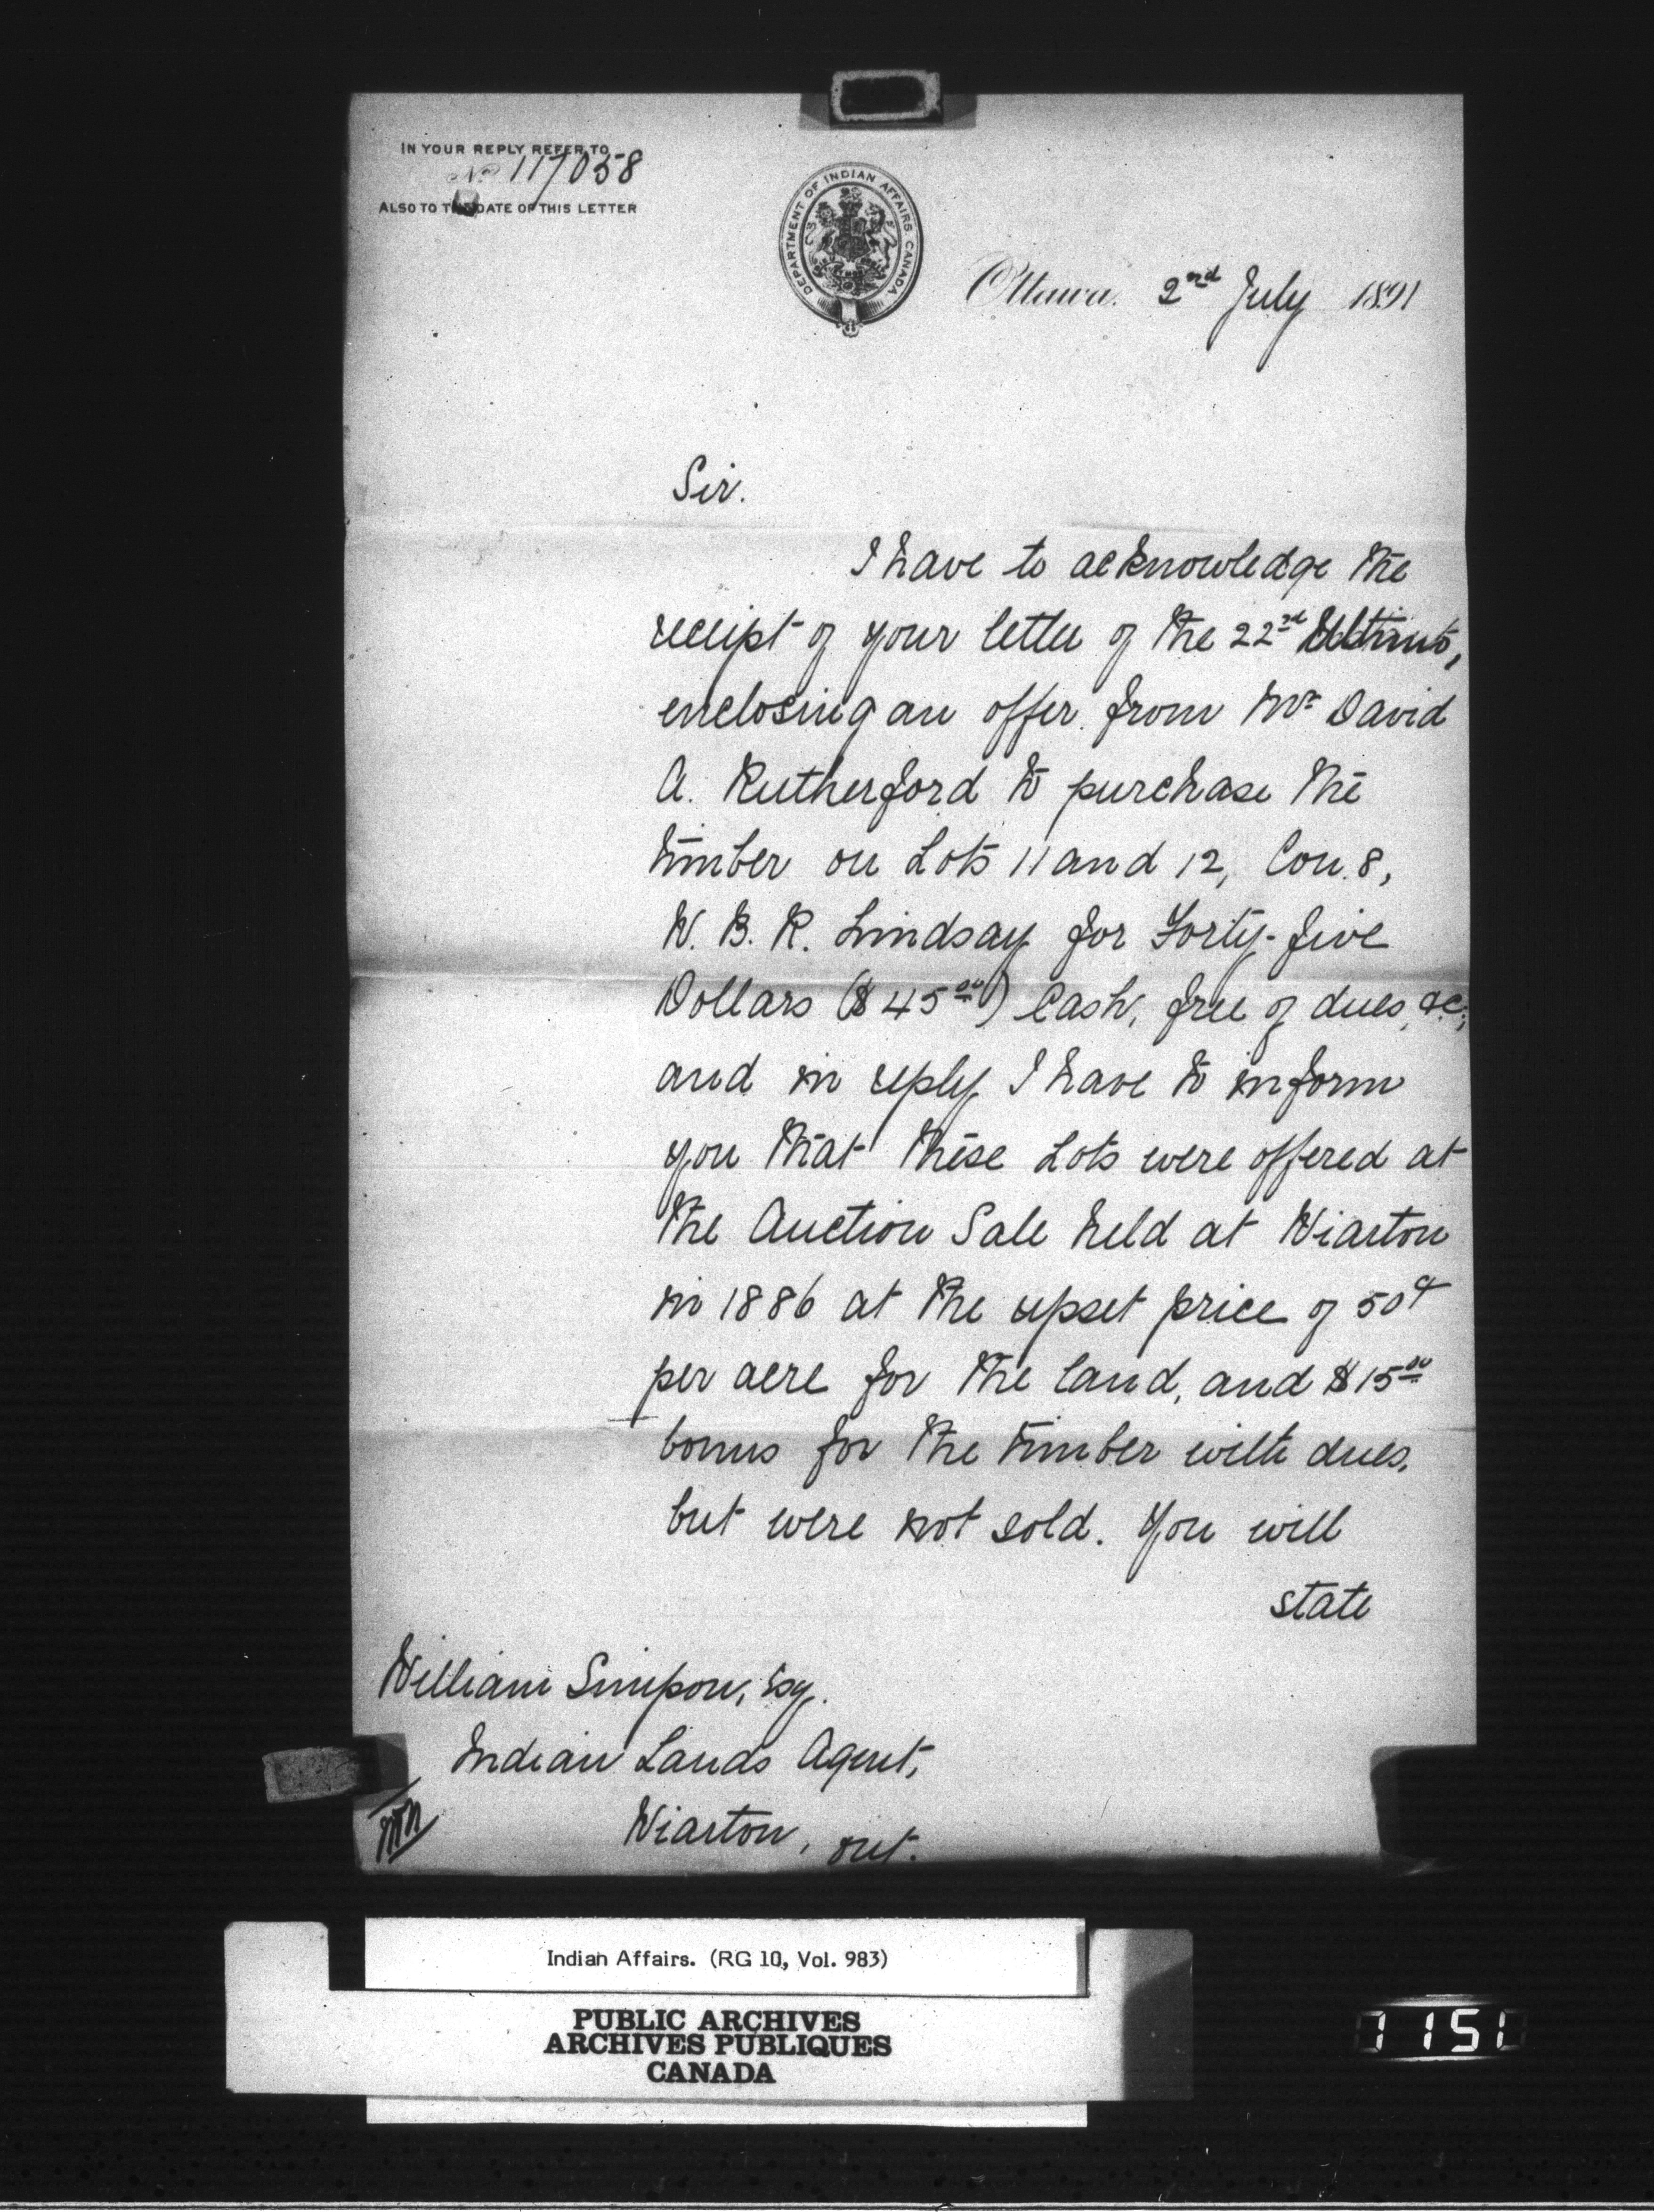 IN YOUR REPLY REFER TO
No 117058
ALSO TO THE DATE OF THIS LETTER
DEPARTMENT OF INDIAN AFFAIRS CANADA
Ottawa. 2nd July 1891
Sir.
I have to acknowledge the
receipt of your letter of the 22nd Ultimo,
enclosing an offer from Mr David
A. Rutherford to purchase the
timber on Lots 11 and 12, Con. 8,
W. B. R. Lindsay for Forty-five
Dollars ($45.00) Cash, free of dues, &c;
and in reply I have to inform
you that these Lots were offered at
the Auction Sale held at Wiarton
in 1886 at the upset price of 50¢
per acre for the land, and $15.00
bonus for the timber with dues,
but were not sold. You will
state
William Simpson, Esq.
Indian Lands Agent,
Wiarton, Ont.
Indian Affairs. (RG 10, Vol. 983)
PUBLIC ARCHIVES
ARCHIVES PUBLIQUES
CANADA
1151